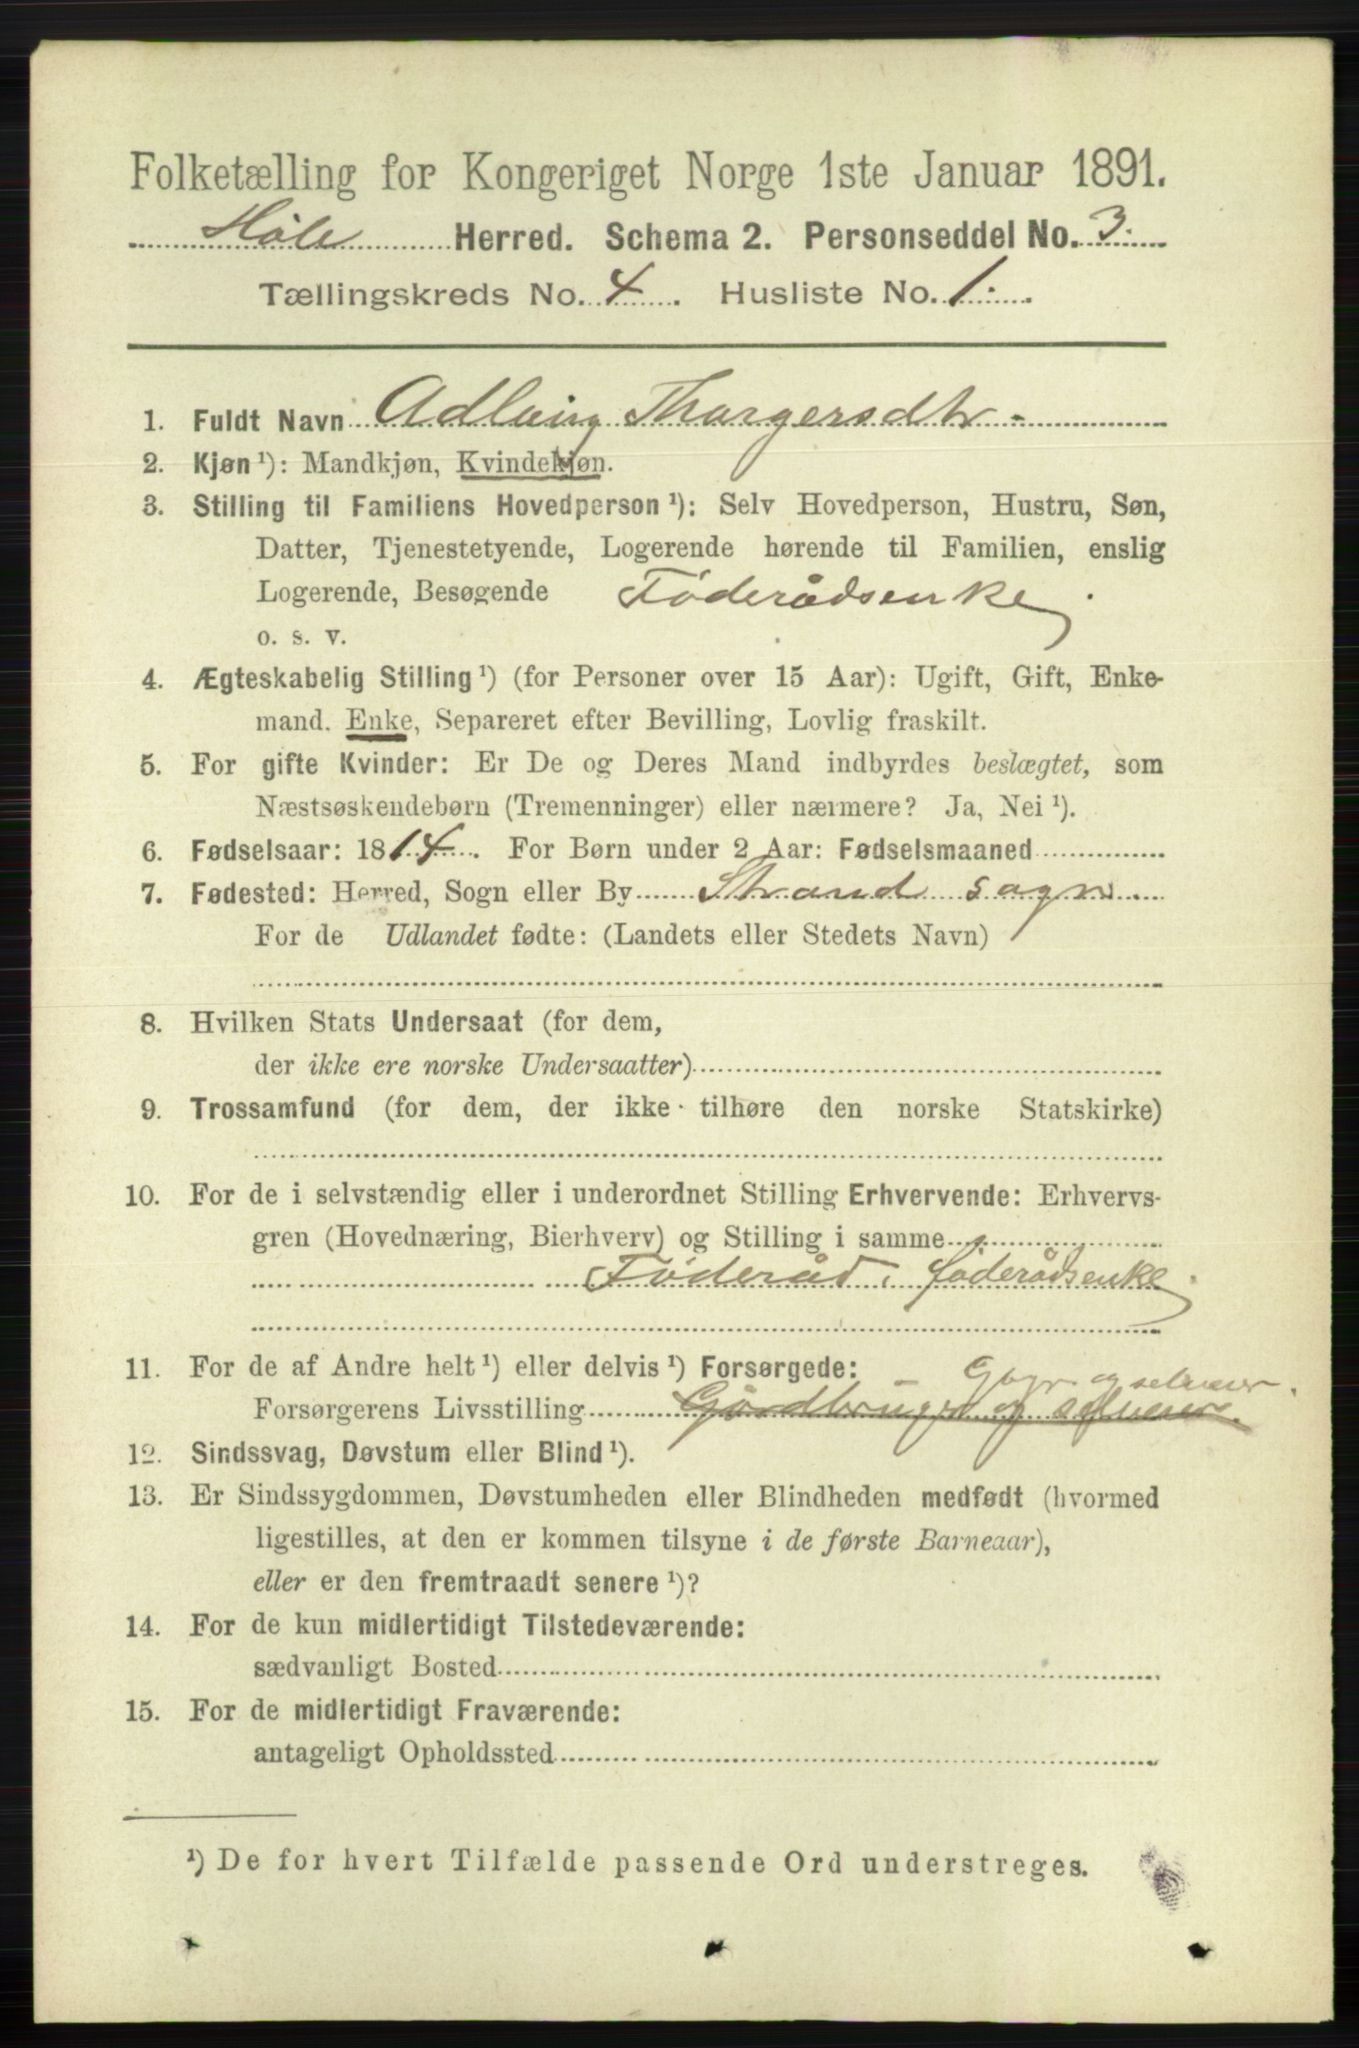 Folketælling for Kongeriget Norge 1ste Januar 1891.
Høle Herred. Schema 2. Personseddel No. 3.
Tællingskreds No. 4. Husliste No. 1.
1. Fuldt Navn Thorgersdtr -
2. Kjøn ¹): Mandkjøn, Kvindekjøn.
3. Stilling til Familiens Hovedperson ¹): Selv Hovedperson, Hustru, Søn,
Datter, Tjenestetyende, Logerende hørende til Familien, enslig
Logerende, Besøgende Føderådsenke.
o. s. v.
4. Ægteskabelig Stilling ¹) (for Personer over 15 Aar): Ugift, Gift, Enke-
mand. Enke, Separeret efter Bevilling, Lovlig fraskilt.
5. For gifte Kvinder: Er De og Deres Mand indbyrdes beslægtet, som
Næstsøskendebørn (Tremenninger) eller nærmere? Ja, Nei ¹).
6. Fødselsaar: 1814. For Børn under 2 Aar: Fødselsmaaned
7. Fødested: Herred, Sogn eller By Strand sogn.
For de Udlandet fødte: (Landets eller Stedets Navn)
8. Hvilken Stats Undersaat (for dem,
der ikke ere norske Undersaatter)
9. Trossamfund (for dem, der ikke tilhøre den norske Statskirke)
10. For de i selvstændig eller i underordnet Stilling Erhvervende: Erhvervs-
gren (Hovednæring, Bierhverv) og Stilling i samme
Føderåd, føderådsenke.
11. For de af Andre helt ¹) eller delvis ¹) Forsørgede: og selveier.
Forsørgerens Livsstilling Gårdbruger og selveier.
12. Sindssvag, Døvstum eller Blind ¹).
13. Er Sindssygdommen, Døvstumheden eller Blindheden medfødt (hvormed
ligestilles, at den er kommen tilsyne i de første Barneaar),
eller er den fremtraadt senere ¹)?
14. For de kun midlertidigt Tilstedeværende:
sædvanligt Bosted
15. For de midlertidigt Fraværende:
antageligt Opholdssted
¹) De for hvert Tilfælde passende Ord understreges.